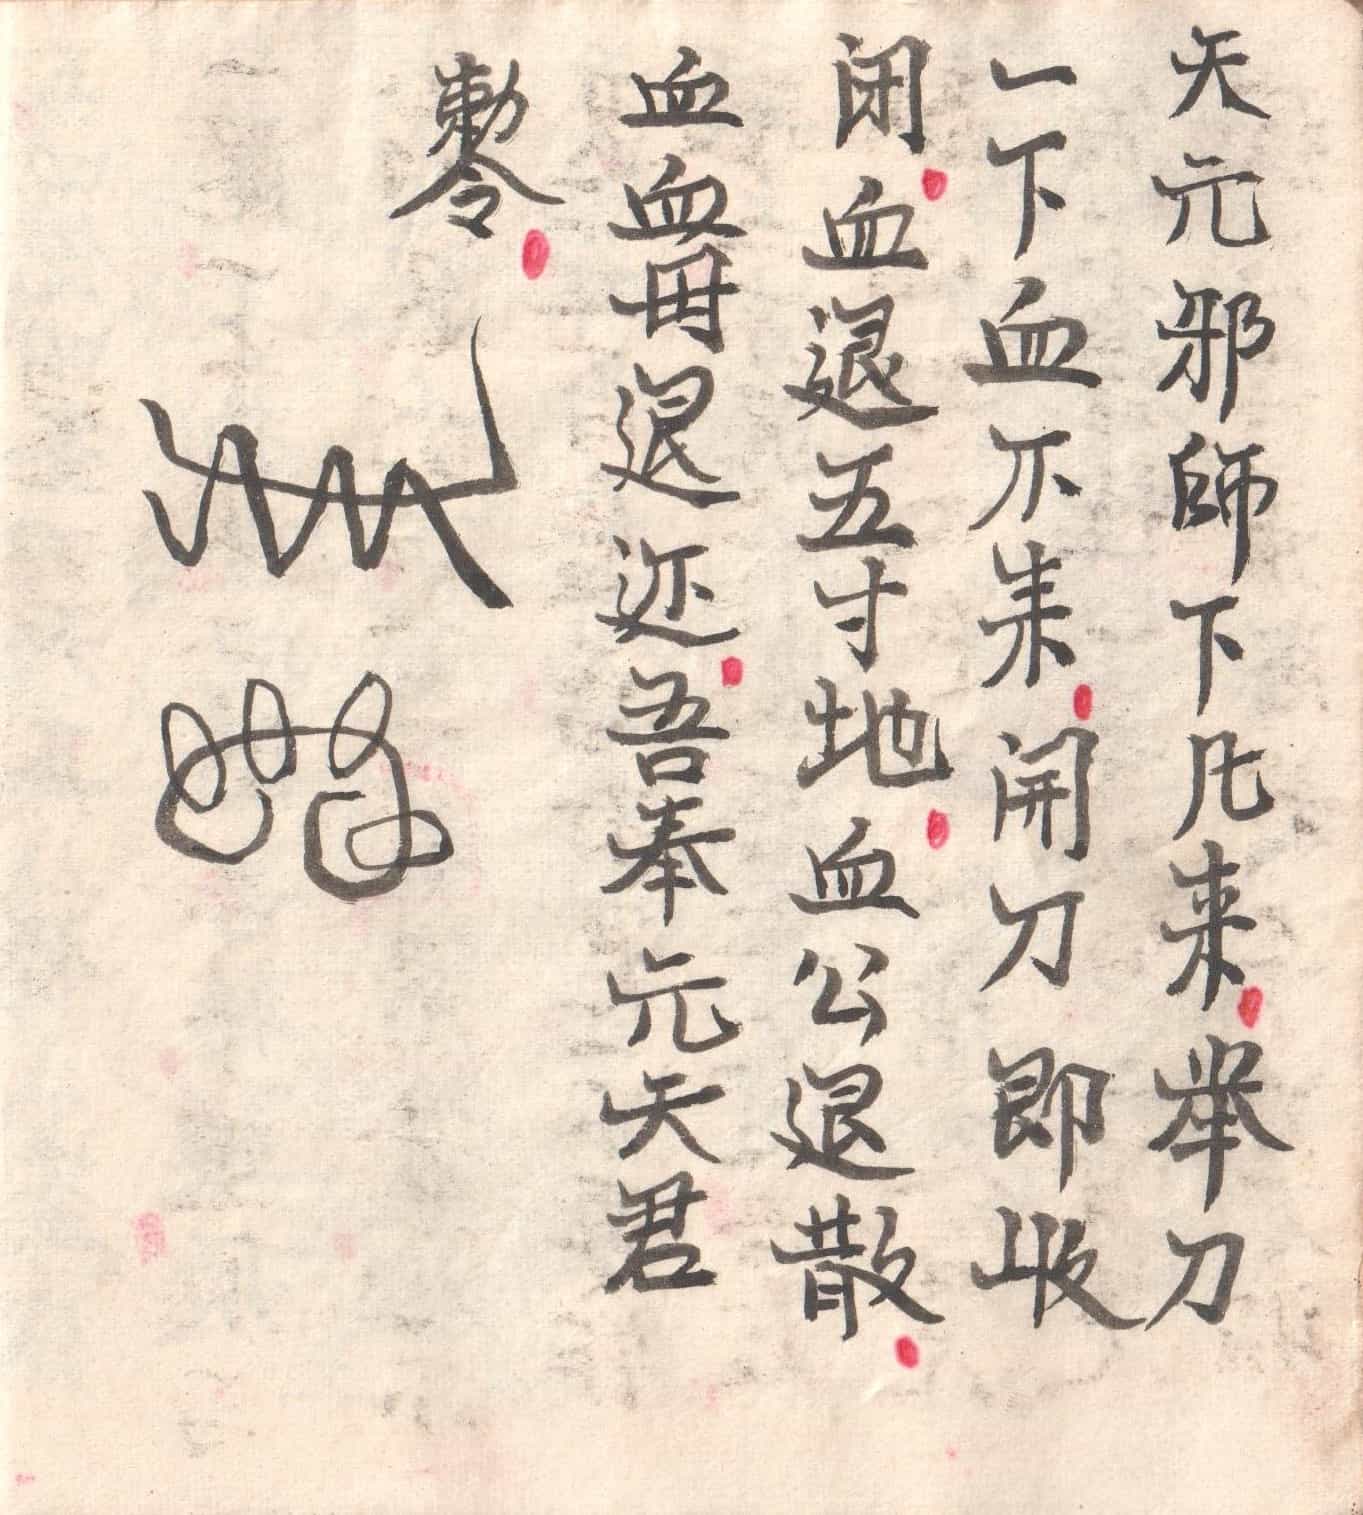 天元邪師下凡来举刀
一下血不来開刀即收
闭血退五寸地血公退散
血血毋退迩吾奉元天君
勅令